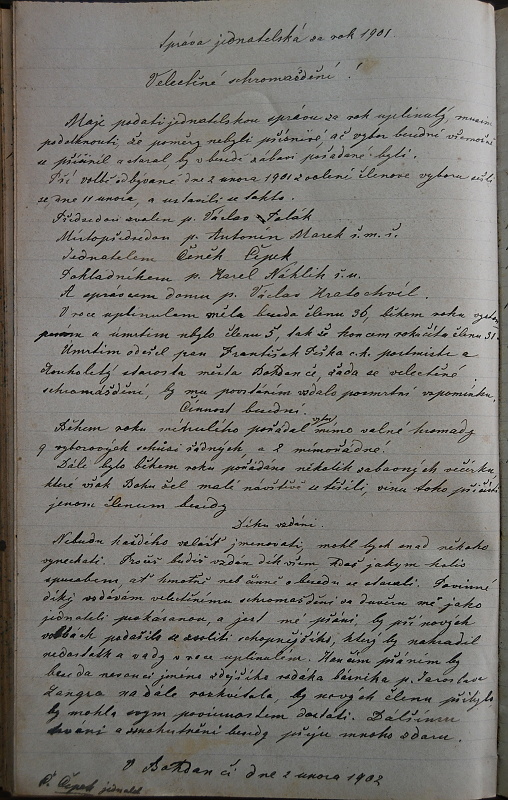 Správa jednatelská za rok 1901.
Velectěné schromaždění!
Maje podati jednatelskou správu za rok uplinulý, musím
podotknouti, že poměry nebyli příznivé, ač výbor besední všemožně
se přičinil a staral, by v besedě zábavi pořádané byli.
Při volbě odbývané dne 2 února 1901 zvolení členové výboru sešli
se dne 11 února, a ustavili se takto.
Předsedou zvolen p. Václav
Místopředsedou p. Antonín Marek
Jednatelem Čeněk Čepek
Pokladníkem p. Karel Náhlík
A správcem domu p. Václav Kratochvíl.
V roce uplinulém měla beseda členů 36, během roku
a úmrtím ubylo členů 5, tak že koncem roku čítá členů 31.
Úmrtím odešel pan František c.k. postmistr a
dlouholetý starosta města Bohdanče, žádá se velectěné
schromáždění, by mu povstáním vzdalo posmrtní vzpomínku.
Činnost besední.
Během roku minulého pořádal výbor mimo valné hromady
9 výborových schůzí řádných, a 2 mimořádné.
Dále bylo během roku pořádáno několik zábavných večírků,
které však Bohužel malé návštěvě se těšili, vinu toho přičísti
jenom členům besedy
Díku vzdání.
Nebudu každého zvlášť jmenovati, mohl bych snad někoho
vynechati. Pročež budiž vzdán dík všem, kdož jakým koliv
spůsobem, ať hmotně neb činně o besedu se starali. Povinné
díky vzdávám velectěnému schromáždění za důvěru mě jako
jednateli prokázanou, a jest mé přání, by při nových
volbách podařilo se zvoliti schopnějšího, který by nahradil
nedostatky a vady v roce uplinulém. Končím přáním by
beseda nesoucí jméno zdejšího rodáka básníka p. Jaroslava
Langra na dále rozkvétala, by nových členů přibylo
by mohla svým povinnostem dostáti. Dalšímu
trvání a zmohutnění besedy přeju mnoho zdaru.
V Bohdanči dne 2 února 1902
Č. Čepek jednatel